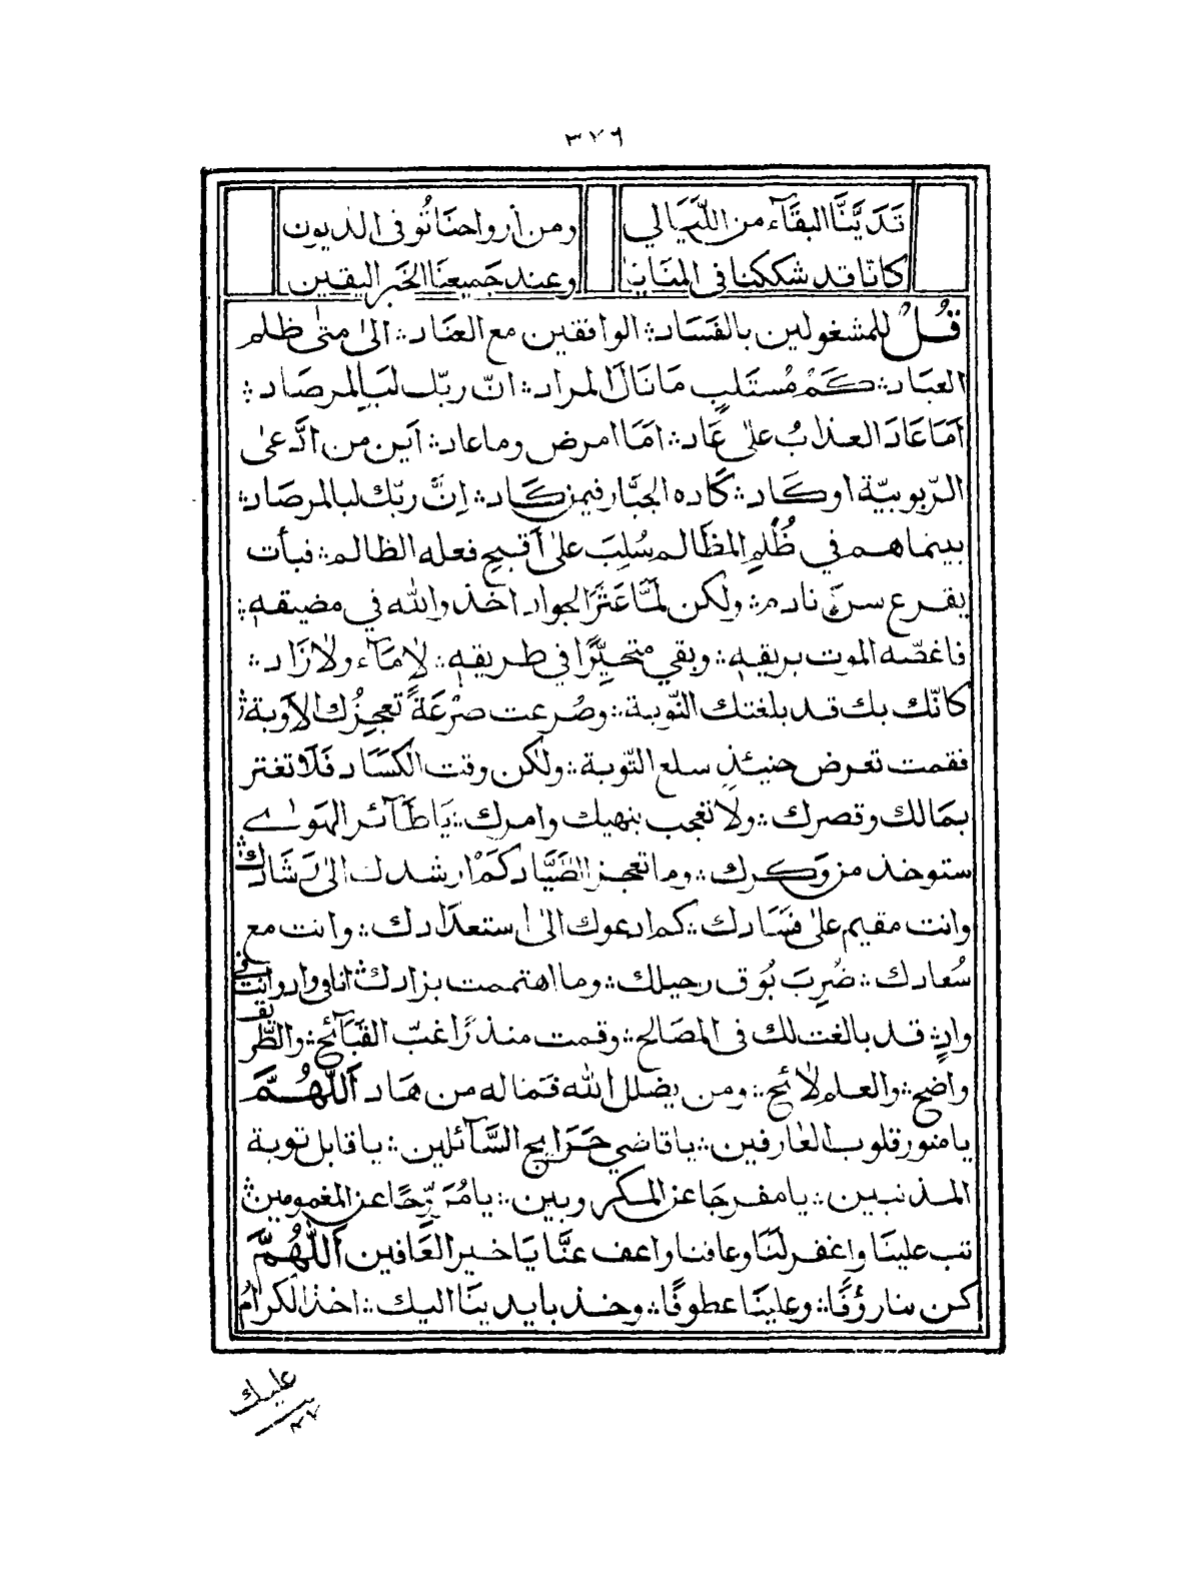 ٣٧٦
تَدَيَّنَّا البقَآء من اللّيَالي ومن أرواحنَا تُوفى الديون
كانّا قد شككنا فى المنَايَا وعند جَميعنَا الخَبر اليقين
قُلْ للمشغولين بالفَسَاد ؞ الواقفين مع العنَاد ؞ الىٰ متىٰ ظلم
العبَاد ؞ كَمْ مُستَلبٍ مَا نَالَ المراد ؞ انّ ربّك لبَالمرصَاد ؞
اَمَا عَادَ العذابُ علىٰ عَادٍ ؞ امَا امرض وماعاد ؞ اَين من ادَّعىٰ
الرّبوبيّة اوكَاد ؞ كَاده الجبّار فيمن كَاد ؞ اِنَّ ربّك لبالمرصَاد ؞
بينماهم في ظُلَمِ المظَالم سُلِبَ علىٰ اَقبح فعله الظالم ؞ فبأت
يقرع سنّ نادم ؞ ولكن لمَّا عَثرَ الجواد اخذ والله في مضيقهٖ ؞
فاغصّه الموت بريقهٖ ؞ وبقي متحيِّرًا في طريقهٖ ؞ لامَآء ولازَاد ؞
كانّك بك قد بلغتك النّوبة ؞ وصُرعت صرْعَةً تعجزُك الاَوبة ؞
فقمت تعرض حنيئذٍ سلع التّوبة ؞ ولٰكن وقت الكسَاد فَلَا تغتر
بمَالك وقصرك ؞ ولَا تعجب بنهيك وامرك ؞ يَا طَآئر الهَوٰے
ستوخذ من وَكرك ؞ وما تعجز الصَّيَّاد كَمْ ارشدك الىٰ رَشَادك ؞
وانت مقيم علىٰ فسَادك ؞ كم ادعوك الىٰ استعدادك ؞ وانت مع
سُعادك ؞ ضُرِبَ بُوق رحيلك ؞ وما اهتممت بزادك ؞ انا في وادٍ وانت في
وادٍ ؞ قد بالغت لك فى المصَالح ؞ وقمت منذرًا غبّ القبَآئح ؞ والطّريق
واضح ؞ والعلم لَائح ؞ ومن يضلل الله فمَا له من هَاد اَللّٰهُمَّ
يا منور قلوب العٰارفين ؞ يا قاضي حَوَايج السَّآئلين ؞ يا قابل توبة
المذنبين ؞ يا مفرجَا عن المكروبين ؞ يا مُرَوِّحًا عن المغمومين ؞
تب علينَا واغفر لنَا وعافنا واعف عنَّا يَا خير العَافين اَللّٰهُمَّ
كن بنا رؤفًا ؞ وعلينَا عطوفًا ؞ وخذ بايدينَا اليك ؞ اخذ الكرامُ
عليك